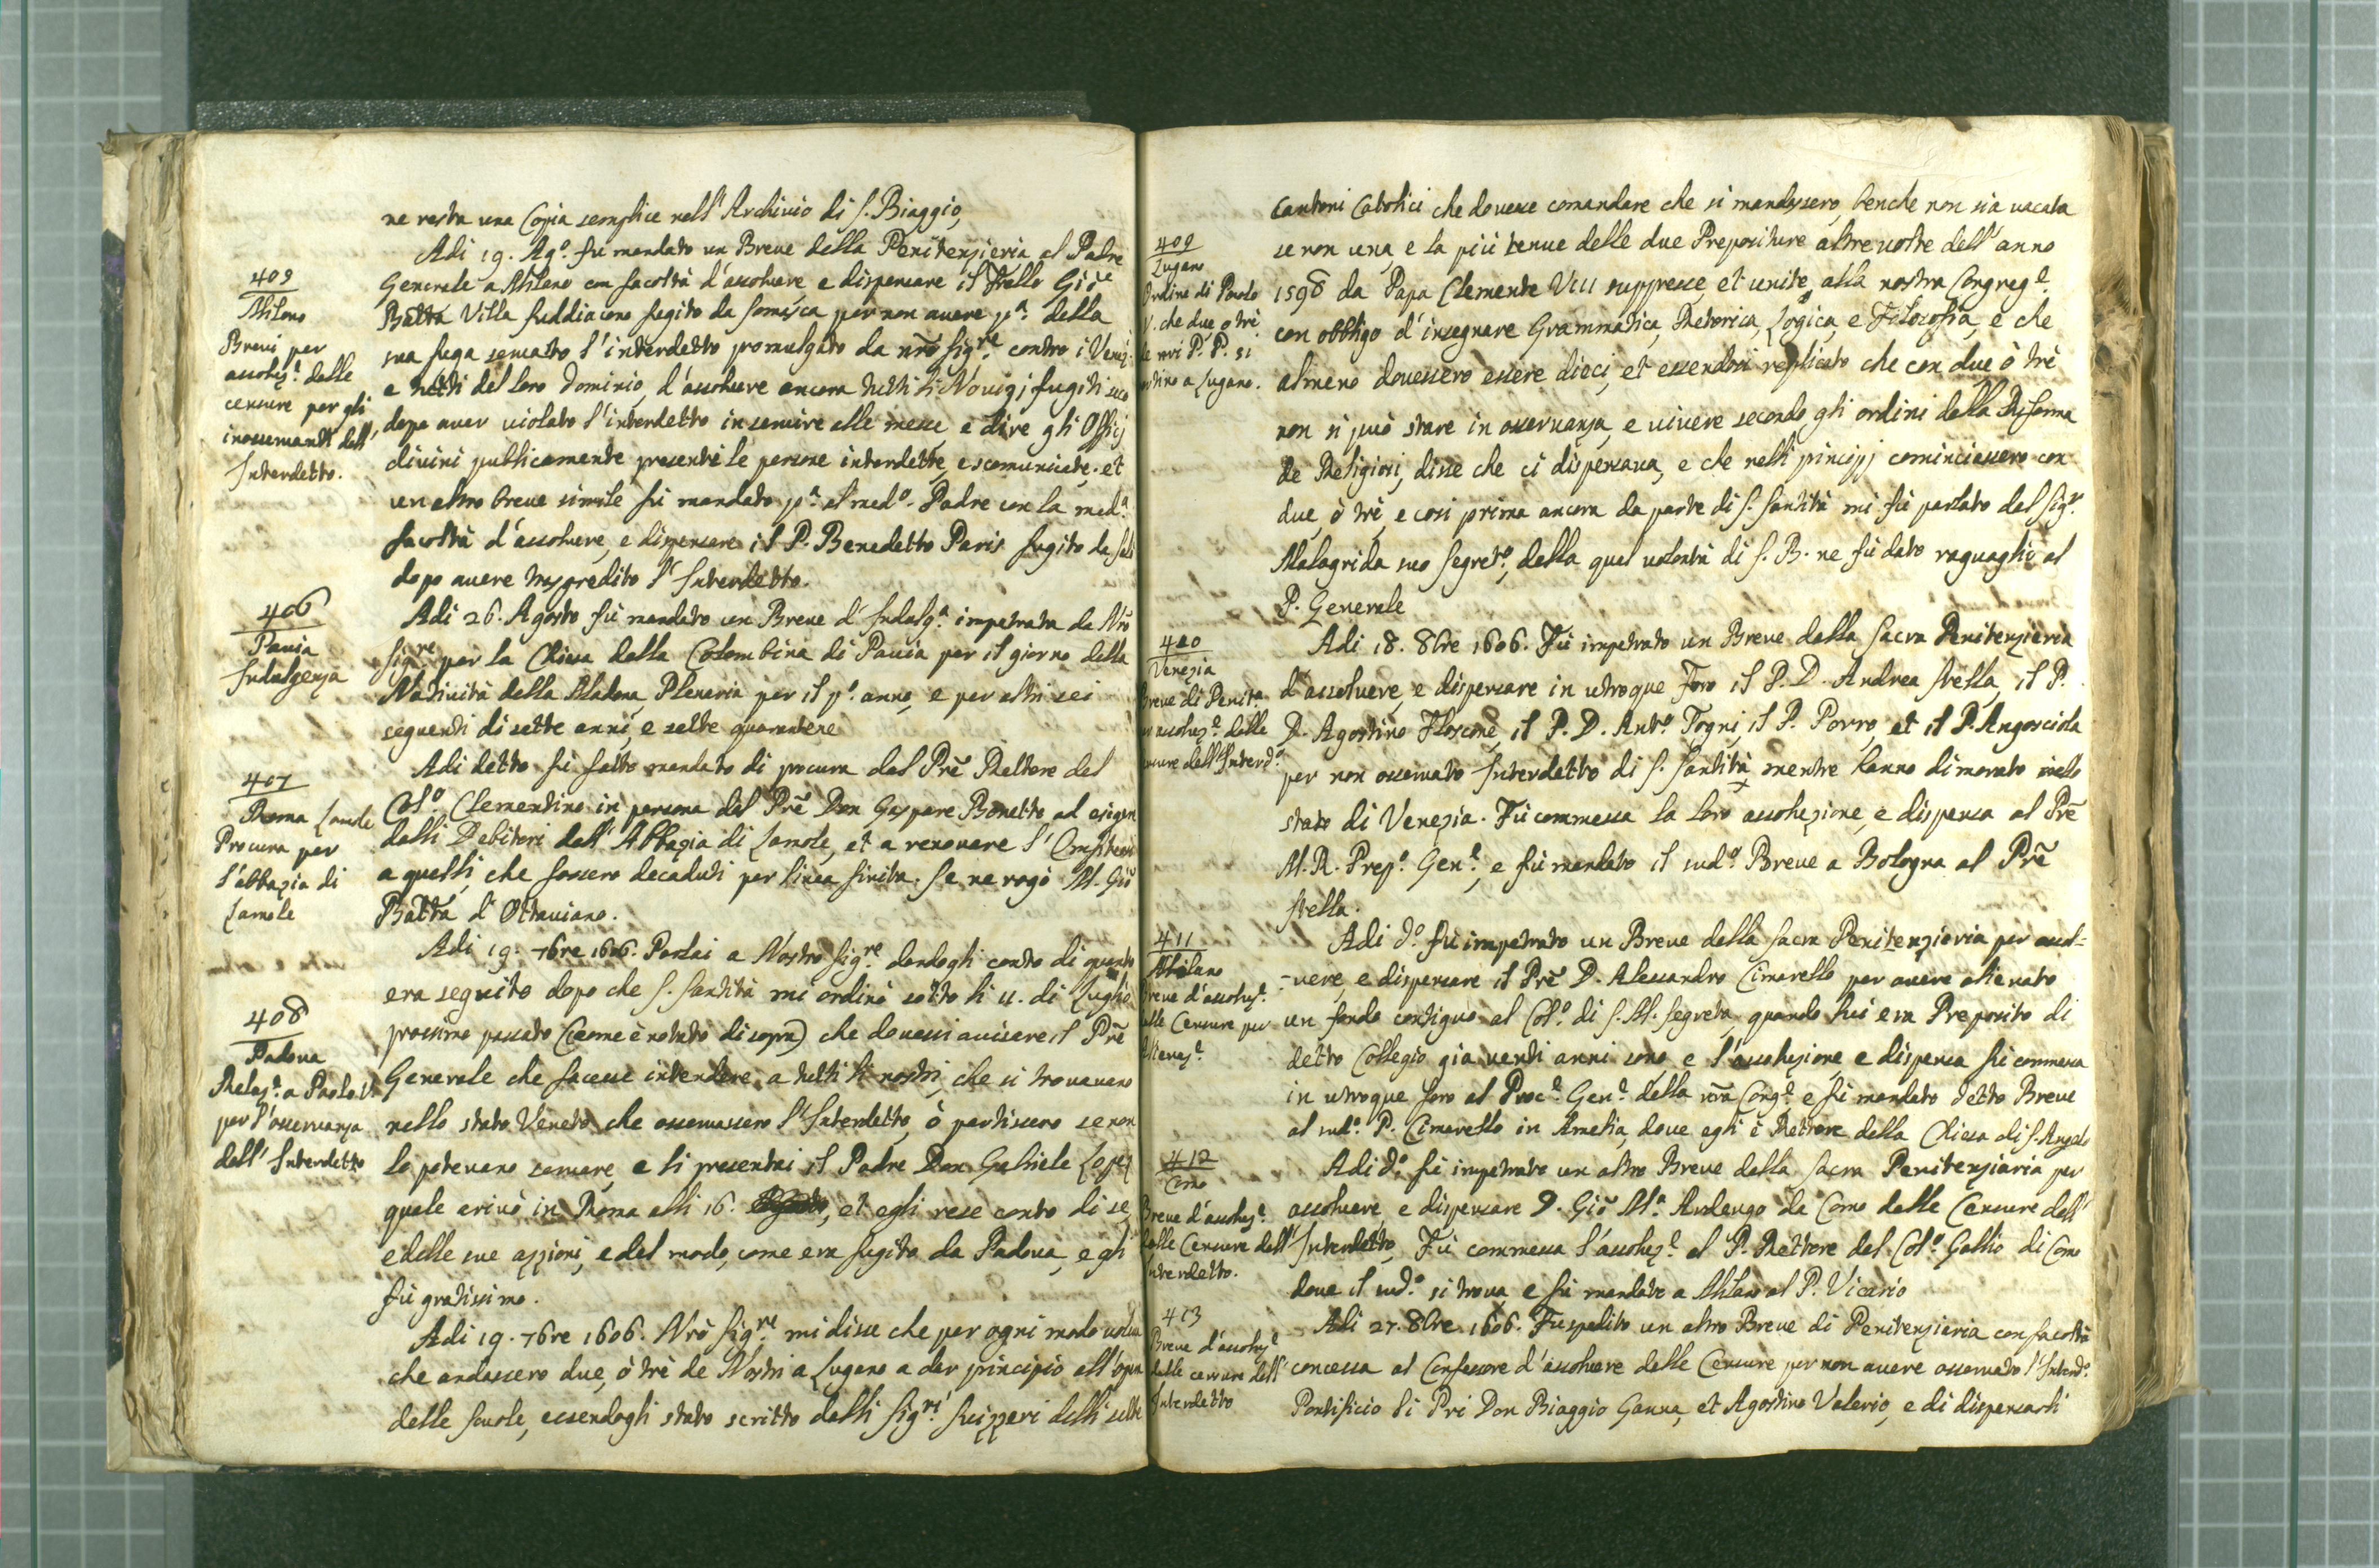 ne resta una Copia semplice nell'Archivio di S. Biaggio,
409
Milano
Brevi per
assoluz.e dalle
censure per gli
inosservanti dell'
Interdetto.
Adi 19. Ag.o fù mandato un Breve della Penitenzieria al Padre
Generale a Milano con facoltà d'assolvere, e dispensare il Fratello Gio:
Batta Villa suddiacono fugito da Somasca per non avere p.a della
sua fuga servato l'interdetto promulgato da nro Sig.re contro i Venez.
e tutti del loro Dominio, d'assolvere ancora tutti li Novizj fugiti
dopo aver violato l'interdetto in servire alle messe, e dire gli Offizj
divini publicamente presenti le persone interdette, e scomunicate. et
un altro breve simile fù mandato p.a al med.o Padre con la med.a
facoltà d'assolvere, e dispensare il P. Benedetto Paris fugito da
dopo avere trasgredito l'Interdetto.
406
Pavia
Indulgenza
Adi 26. Agosto fù mandato un Breve d'Indulg.a impetrata da Nro
Sig.re per la Chiesa della Colombina di Pavia per il giorno della
Natività della Madona, Plenaria per il p.o anno, e per altri sei
seguenti di sette anni, e sette quarantene
407
Roma Lamole
Procura per
l'abbazia di
Lamole
Adi detto fù fatto mandato di procura dal Prē Rettore del
Col.o Clementino in persona del Prē Don Gaspare Bonetto, ad esigere
dalli Debitori dell'Abbazia di Lamole, et a renovare l'
a quelli, che fossero decaduti per linea finita. Se ne rogò M. Gio
Batta d'Ottaviano.
408
Padova
Relaz.e a Paolo V.
per l'osservanza
dell'Interdetto
Adi 19. 7bre 1606. Parlai a Nostro Sig.re dandogli conto di quanto
era seguito dopo che S. Santità mi ordinò sotto li 11. di Luglio
prossimo passato (come è notato di sopra) che dovessi avisare il Prē
Generale che facesse intendere a tutti li nostri, che si trovavano
nello stato Veneto, che osservassero l'Interdetto, ò partissero se non
lo potevano servare, e li presentai il Padre Don Gabriele Lopez
quale arivò in Roma alli 16. et egli rese conto di se,
e delle sue azzioni, e del modo, come era fugito da Padova, e gli
fù gratissimo.
Adi 19. 7bre 1606. Nrō Sig.re mi disse che per ogni modo voleva
che andassero due, ò trè de Nostri a Lugano a dar principio all'opra
delle scuole, essendogli stato scritto dalli Sig.ri Suizzeri delli sette
409
Lugano
Ordine di Paolo
V. che due o trè
de nri P. P. si
a Lugano.
Cantoni Catolici che dovesse comandare che si mandassero, benche non sia vacata
se non una, e la più tenue delle due Prepositure altre volte dell'anno
1598 da Papa Clemente VIII suppresse, et unite, alla nostra Congreg.e
con obbligo d'insegnare Grammatica, Rhetorica, Logica, e Filosofia, e che
almeno dovessero essere dieci, et essendosi replicato che con due ò trè
non si può stare in osservanza, e vivere secondo gli ordini della Riforma
de Religiosi, disse che ci dispensava, e che nelli principj cominciassero con
due, ò trè, e così prima ancora da parte di S. Santità mi fù parlato dal Sig.r
Malagrida suo Segret.o, della qual volontà di S. B. ne fù dato raguaglio al
P. Generale
410
Venezia
Breve di Penit.a
assoluz.e dalle
dell'Interd.o
Adi 18. 8bre 1606. Fù impetrato un Breve dalla Sacra Penitenzieria
d'assolvere, e dispensare in utroque Foro il P. D. Andrea Stella, il P.
D. Agostino Floscone, il P. D. Ant.o Togni, il P. Porro, et il P. Angosciola
per non osservato Interdetto di S. Santità, mentre hanno dimorato nello
stato di Venezia. Fù commessa la loro assoluzione, e dispensa al Prē
M. R. Prep.o Gen.e, e fù mandato il sud.o Breve a Bologna al Prē
Stella.
411
Milano
Breve d'assoluz.e
dalle Censure per
Alienaz.e
Adi d.o fù impetrato un Breve dalla Sacra Penitenzieria per assol=
=vere, e dispensare il Prē D. Alessandro Cimarello per avere alienato
un fondo contiguo al Col.o di S. M. Segreta, quando lui era Preposito di
detto Collegio già venti anni sono, e l'assoluzione, e dispensa fù commessa
in utroque foro al Proc.e Gen.e della nrā Cong.e e fù mandato detto Breve
al sud.o P. Cimarello in Amelia, dove egli è Rettore della Chiesa di S. Angelo
412
Como
Breve d'assoluz.e
dalle Censure dell'
Interdetto.
Adi d.o fù impetrato un altro Breve dalla Sacra Penitenziaria per
assolvere, e dispensare D. Gio M.a Ardengo da Como dalle Censure dell'
Interdetto, Fù commessa l'assoluz.e al P. Rettore del Col.o Gallio di Como
dove il sud.o si trova e fù mandato a Milano al P. Vicario
413
Breve d'assoluz.e
dalle censure dell'
Interdetto
Adi 27. 8bre 1606. Fu spedito un altro Breve di Penitenzieria con facoltà
concessa al Confessore d'assolvere dalle Censure per non avere osservato l'Interd.o
Pontificio li Pri Don Biaggio Ganna, et Agostino Valerio, e di dispensarli